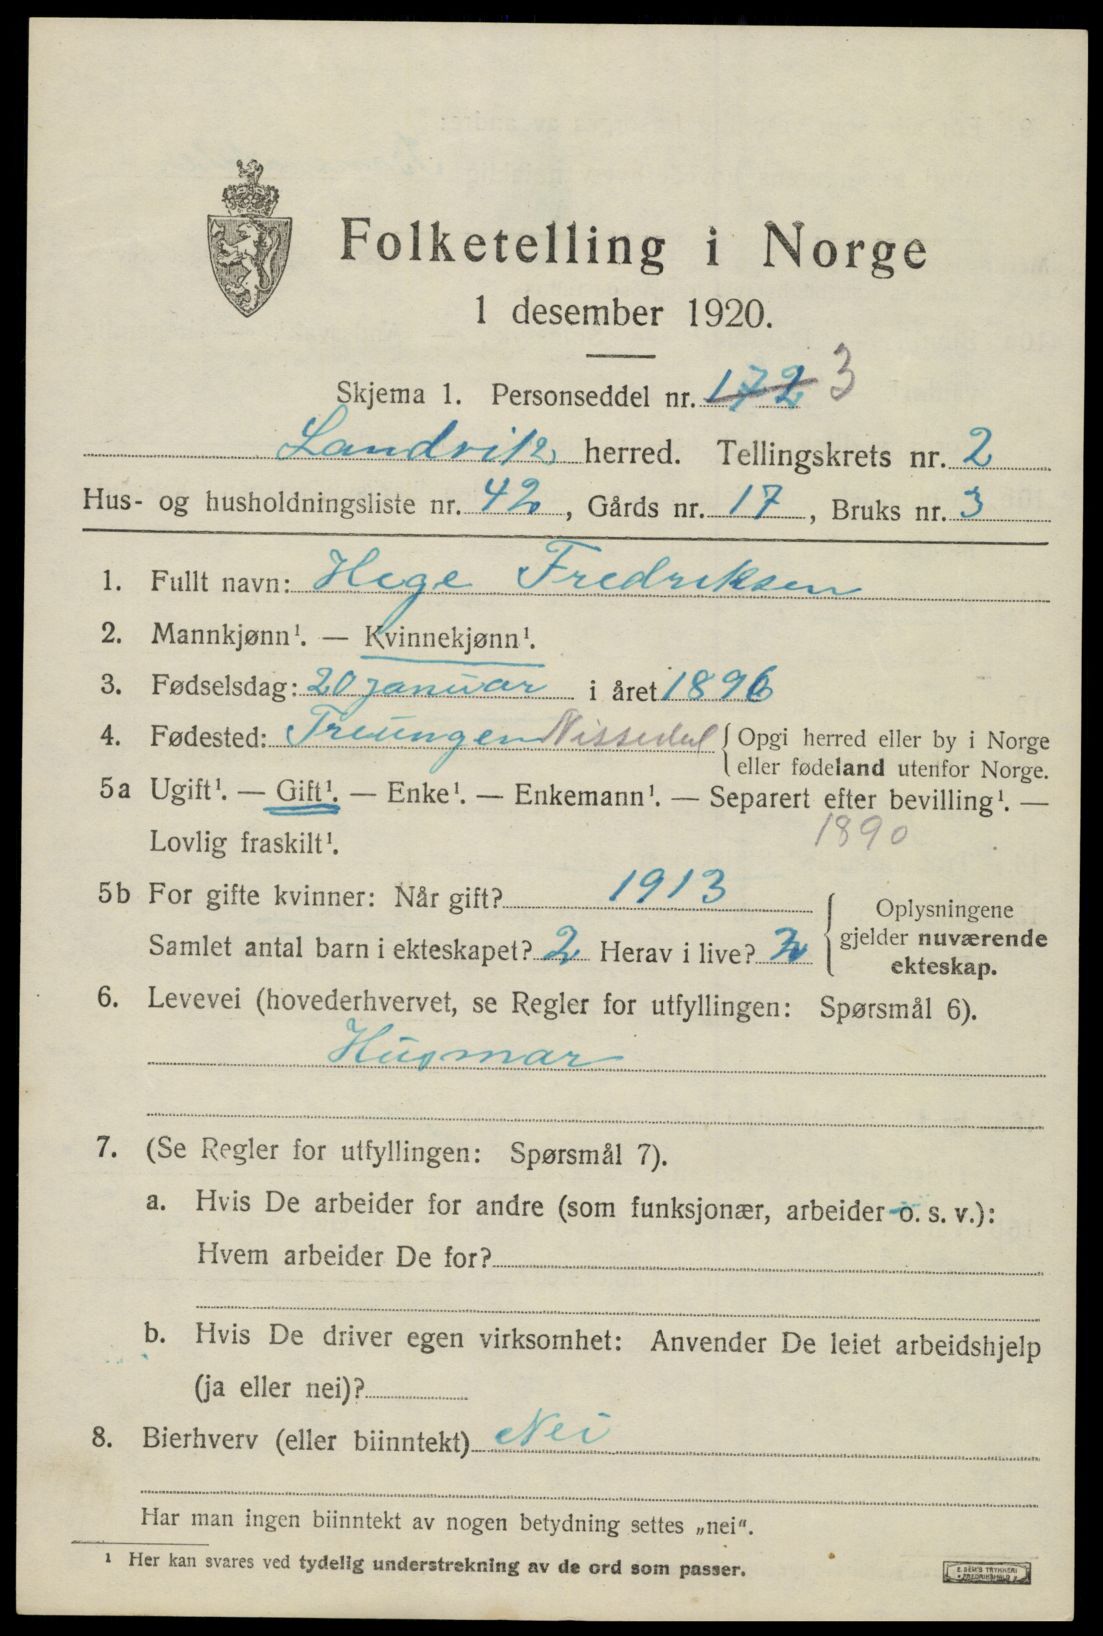 Folketelling i Norge
1 desember 1920.
Skjema 1. Personseddel nr. 172 3
Landvik herred. Tellingskrets nr. 2
Hus- og husholdningsliste nr. 42, Gårds nr. 17, Bruks nr. 3
1. Fullt navn: Hege Fredriksen
2. Mannkjønn¹. — Kvinnekjønn¹.
3. Fødselsdag: 20 januar i året 1896
4. Fødested: Treungen Nissedal { Opgi herred eller by i Norge
eller fødeland utenfor Norge.
5a Ugift¹. — Gift¹. — Enke¹. — Enkemann¹. — Separert efter bevilling¹. —
Lovlig fraskilt¹. 1890
5b For gifte kvinner: Når gift? 1913
Samlet antal barn i ekteskapet? 2 Herav i live? 2
{ Oplysningene
gjelder nuværende
ekteskap.
6. Levevei (hovederhvervet, se Regler for utfyllingen: Spørsmål 6).
Husmor
7. (Se Regler for utfyllingen: Spørsmål 7).
a. Hvis De arbeider for andre (som funksjonær, arbeider o. s. v.):
Hvem arbeider De for?
b. Hvis De driver egen virksomhet: Anvender De leiet arbeidshjelp
(ja eller nei)?
8. Bierhverv (eller biinntekt) Nei
Har man ingen biinntekt av nogen betydning settes „nei“.
¹ Her kan svares ved tydelig understrekning av de ord som passer.
E. SEM'S TRYKKERI
FREDRIKSHALD